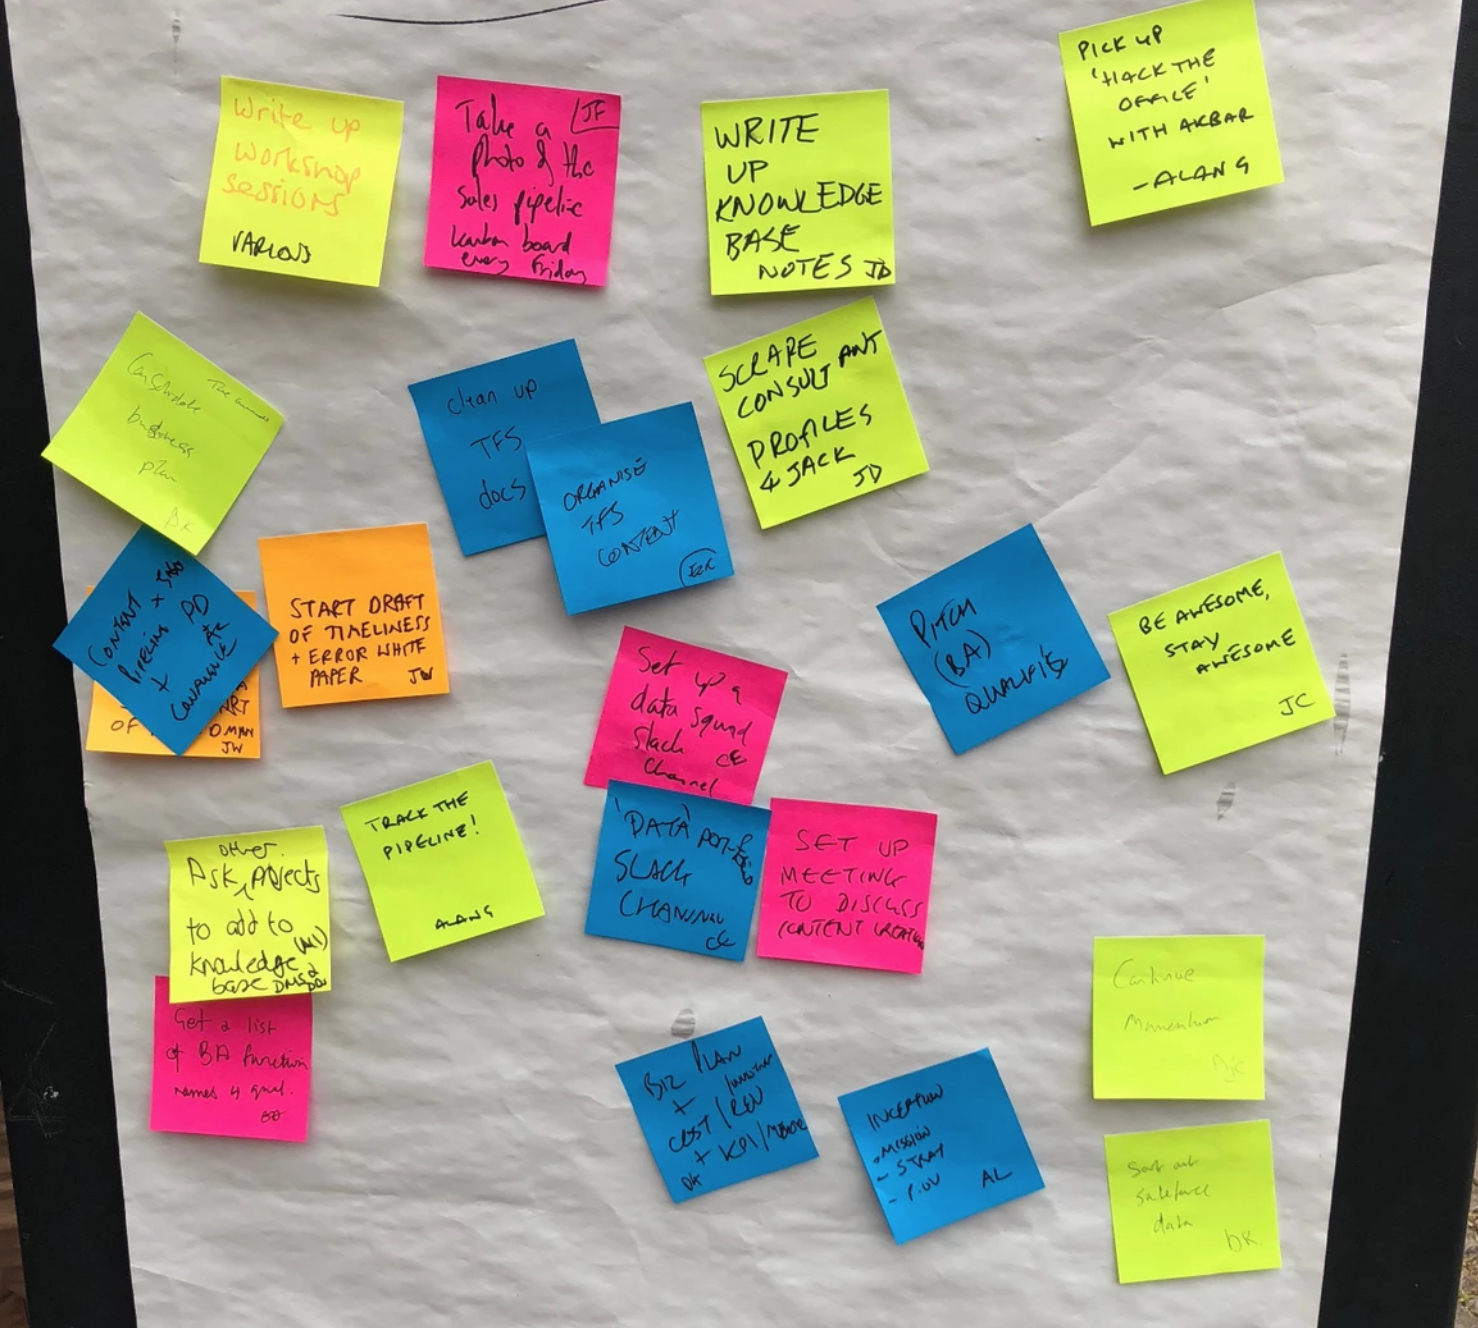 Write up
workshop
sessions
VARIOUS
Take a JF
photo of the
sales pipeline
kanban board
every Friday
WRITE
UP
KNOWLEDGE
BASE
NOTES JD
PICK UP
'HACK THE
OFFICE'
WITH AKBAR
- ALAN G
Consolidate
business
plan
DK
clean up
TFS
docs
ORGANISE
TFS
CONTENT
SCRAPE
CONSULTANT
PROFILES
4 JACK
JD
CONTENT +
PIPELINE
+
START DRAFT
OF TIMELINESS
+ ERROR WHITE
PAPER JW
OF
JW
Set up a
data squad
slack CE
channel
PITCH
(BA)
BE AWESOME,
STAY
AWESOME
JC
TRACK THE
PIPELINE!
ALAN G
other
Ask ^ projects
to add to
knowledge
base
'DATA
SLACK
CHANNEL
CE
SET UP
MEETING
TO DISCUSS
CONTENT CREATION
Get a list
of BA function
names 4 qual.
BIZ PLAN
+
COST/REV
+ KPI/
DK
INCEPTION
- MISSION
- STRAT
- P.OV AL
Continue
Momentum
Sort out
salesforce
data
DK